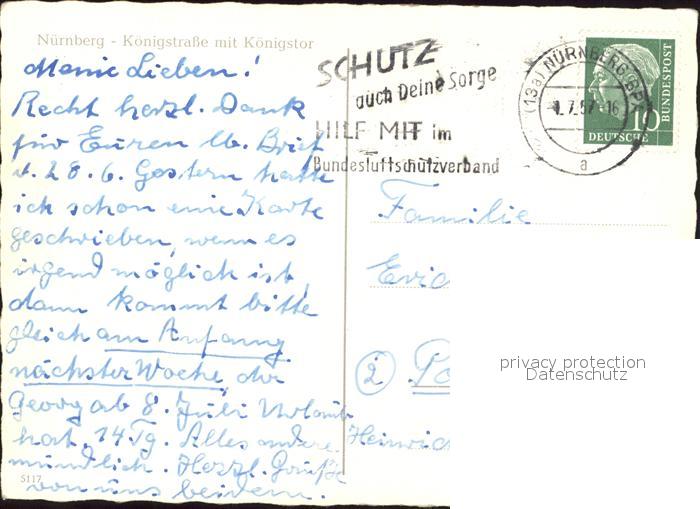 Nürnberg - Königstraße mit Königstor
Meine Lieben!
Recht herzl. Dank
für Euren lb. Brief
v. 28. 6. Gestern hatte
ich schon eine Karte
geschrieben, wenn es
irgend möglich ist,
dann kommt bitte
gleich am Anfang
nächster Woche, da
Georg ab 8. Juli Urlaub
hat. 14 Tg. Alles andere
mündlich. Herzl. Grüße
von uns beiden.
5117
SCHUTZ
auch Deine Sorge
HILF MIT im
Bundesluftschutzverband
(13a) NÜRNBERG
1.7.57-16
a
10
DEUTSCHE
BUNDESPOST
Familie
Eric
2
Heinric
privacy protection
Datenschutz